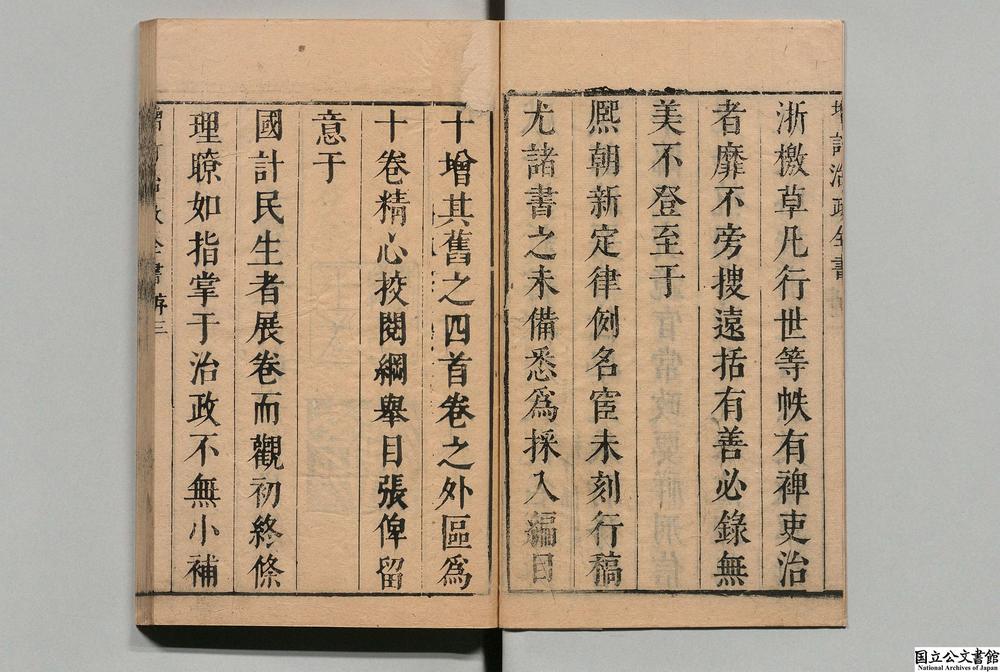 增訂治政全書
浙檄草凡行世等帙有裨吏治
者靡不旁搜遠括有善必錄無
美不登至于
熈朝新定律例名宦未刻行稿
尤諸書之未備悉爲採入編目
十增其舊之四首卷之外區爲
十卷精心挍閱綱舉目張俾留
意于
國計民生者展卷而觀初終條
理瞭如指掌于治政不無小補
治政全書 序 三
国立公文書館
National Archives of Japan